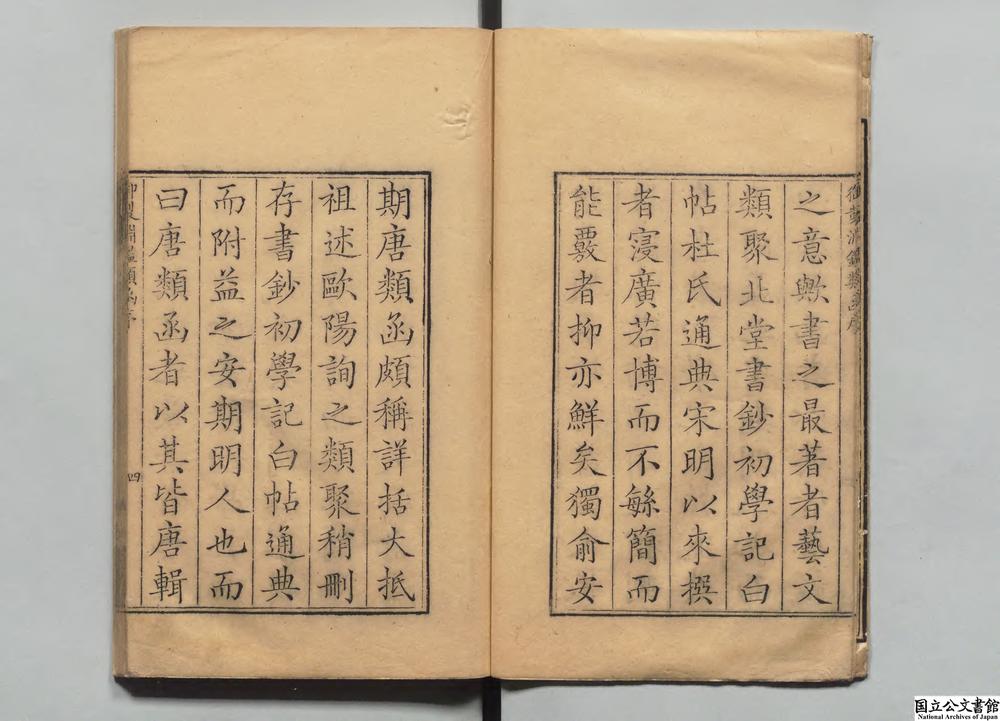 之意歟書之最著者藝文
類聚北堂書鈔初學記白
帖杜氏通典宋明以來撰
者寖廣若博而不緐簡而
能覈者抑亦鮮矣獨俞安
期唐類函頗稱詳括大抵
祖述歐陽詢之類聚稍刪
存書鈔初學記白帖通典
而附益之安期明人也而
曰唐類函者以其皆唐輯
御製淵鑑類函序
四
国立公文書館
National Archives of Japan